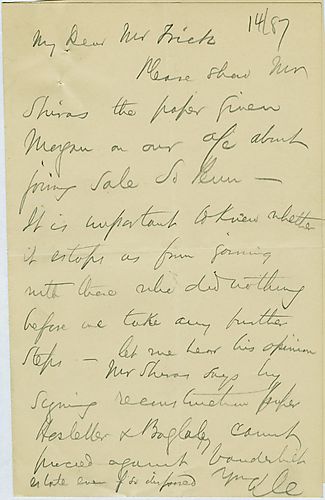 14/87
My Dear Mr Frick
Please show Mr
Shiras the paper given
Morgan on our a/c about
joining Sale So Penn —
It is important to know whether
it estops us from joining
with those who did nothing
before we take any further
steps — let me hear his opinion
Mr Shiras says by
signing reconstruction paper
Hostetter & Baglaley cannot
proceed against Vanderbilt
estate even if so disposed
Yours AC